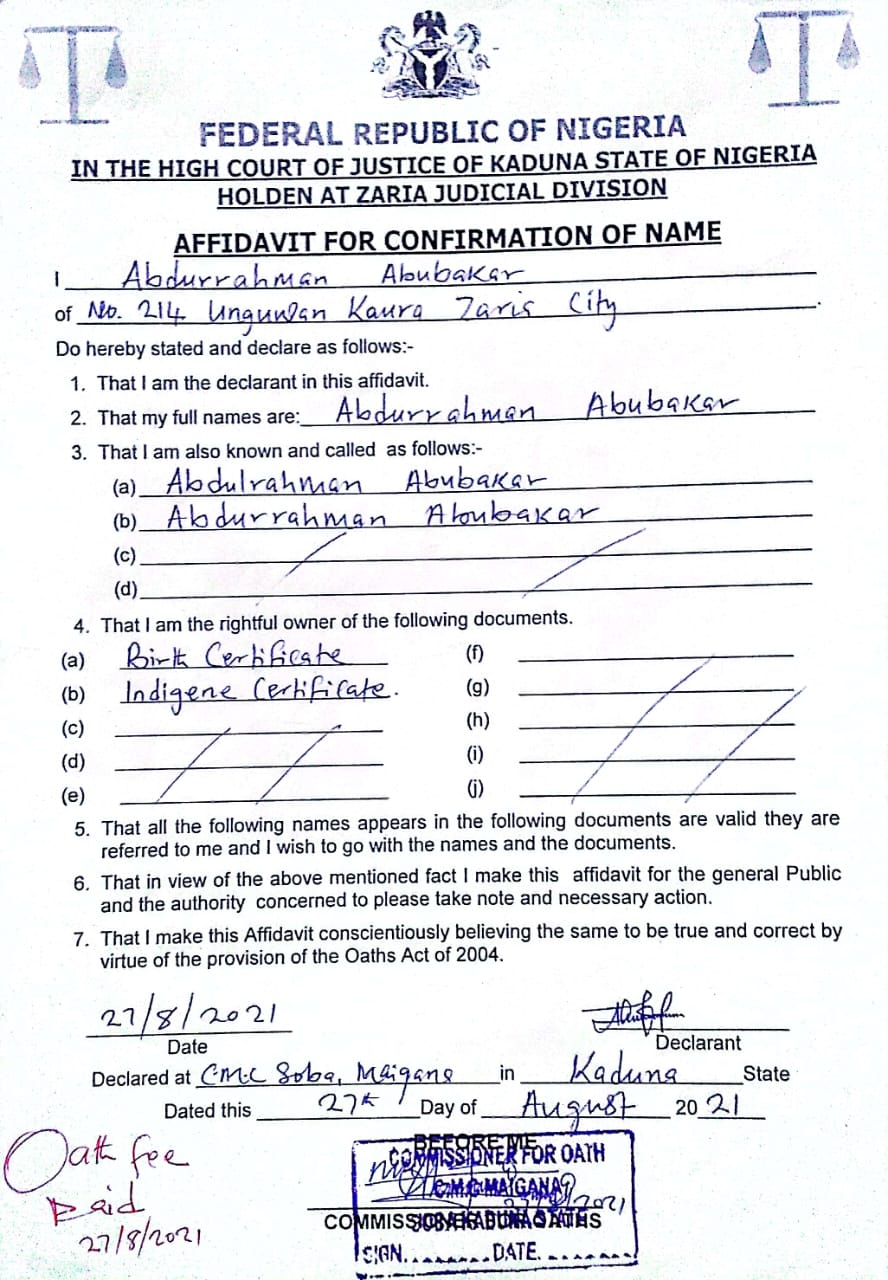 FEDERAL REPUBLIC OF NIGERIA
IN THE HIGH COURT OF JUSTICE OF KADUNA STATE OF NIGERIA
HOLDEN AT ZARIA JUDICIAL DIVISION
AFFIDAVIT FOR CONFIRMATION OF NAME
I Abdurrahman Abubakar
of No. 214 Unguwan Kaura Zaria City
Do hereby stated and declare as follows:-
1. That I am the declarant in this affidavit.
2. That my full names are: Abdurrahman Abubakar
3. That I am also known and called as follows:-
(a) Abdulrahman Abubakar
(b) Abdurrahman Abubakar
(c)
(d)
4. That I am the rightful owner of the following documents.
(a) Birth Certificate (f)
(b) Indigene Certificate. (g)
(c) (h)
(d) (i)
(e) (j)
5. That all the following names appears in the following documents are valid they are
referred to me and I wish to go with the names and the documents.
6. That in view of the above mentioned fact I make this affidavit for the general Public
and the authority concerned to please take note and necessary action.
7. That I make this Affidavit conscientiously believing the same to be true and correct by
virtue of the provision of the Oaths Act of 2004.
27/8/2021
Date Declarant
Declared at CMC Soba, Maigana in Kaduna State
Dated this 27th Day of August 20 21
Oath fee
Paid
27/8/2021
BEFORE ME
COMMISSIONER FOR OATH
C.M.C MAIGANA
27/8/2021
COMMISSIONER FOR OATHS
SIGN.........DATE.........